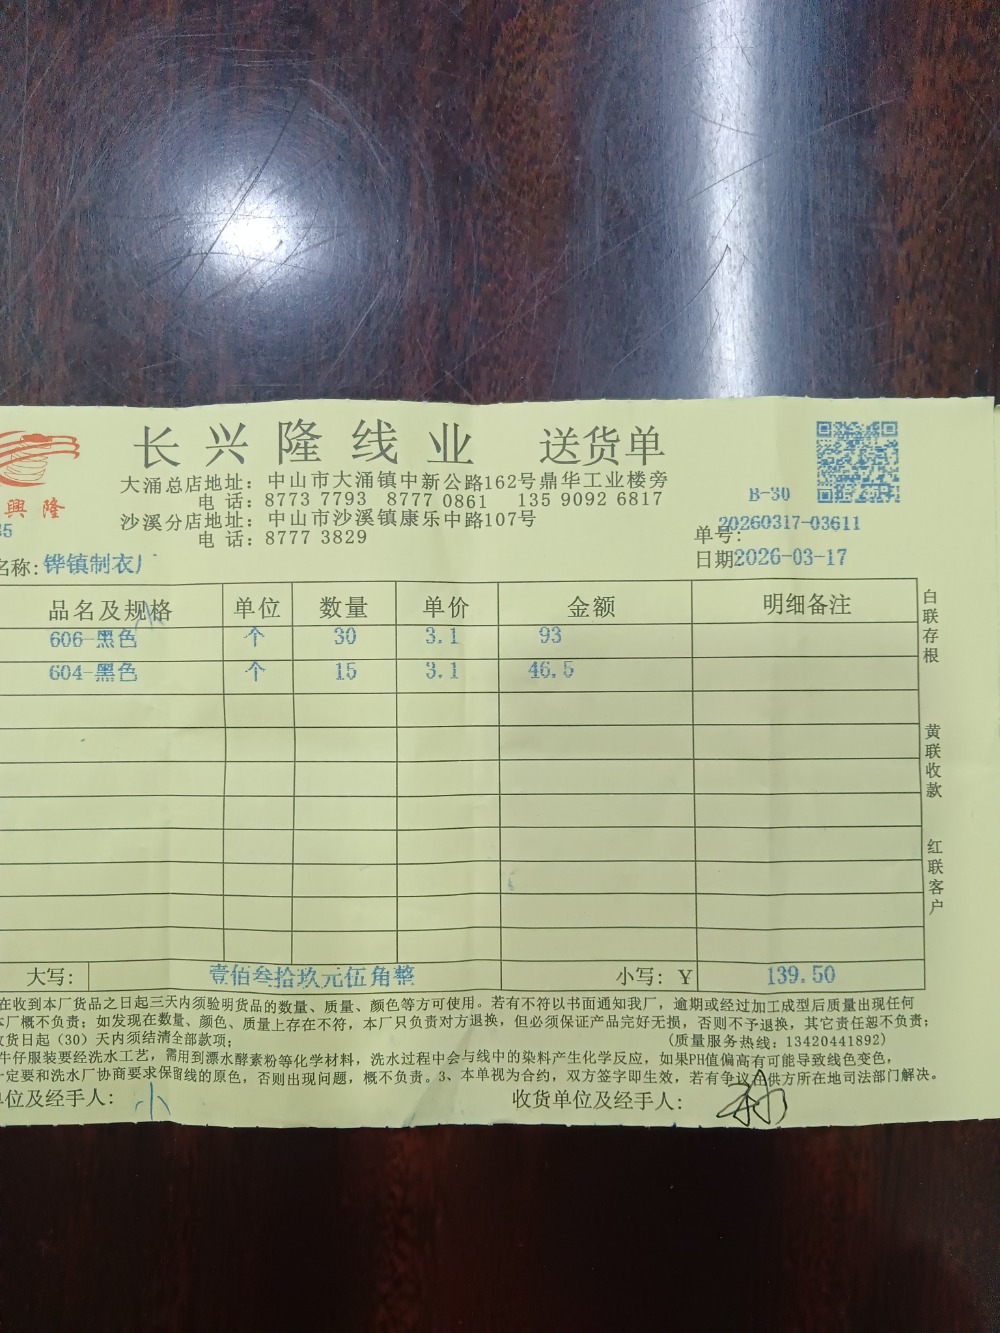 长兴隆线业 送货单
興隆
大涌总店地址：中山市大涌镇中新公路162号鼎华工业楼旁
电 话：8773 7793 8777 0861 135 9092 6817
沙溪分店地址：中山市沙溪镇康乐中路107号
电 话：8777 3829
B-30
单号：20260317-03611
日期2026-03-17
名称：铧镇制衣厂
品名及规格 单位 数量 单价 金额 明细备注
606-黑色 个 30 3.1 93
604-黑色 个 15 3.1 46.5
大写： 壹佰叁拾玖元伍角整 小写：￥ 139.50
白联存根
黄联收款
红联客户
在收到本厂货品之日起三天内须验明货品的数量、质量、颜色等方可使用。若有不符以书面通知我厂，逾期或经过加工成型后质量出现任何
本厂概不负责；如发现在数量、颜色、质量上存在不符，本厂只负责对方退换，但必须保证产品完好无损，否则不予退换，其它责任恕不负责；
货日起（30）天内须结清全部款项； （质量服务热线：13420441892）
牛仔服装要经洗水工艺，需用到漂水酵素粉等化学材料，洗水过程中会与线中的染料产生化学反应，如果PH值偏高有可能导致线色变色，
一定要和洗水厂协商要求保留线的原色，否则出现问题，概不负责。3、本单视为合约，双方签字即生效，若有争议在供方所在地司法部门解决。
单位及经手人： 小 收货单位及经手人：